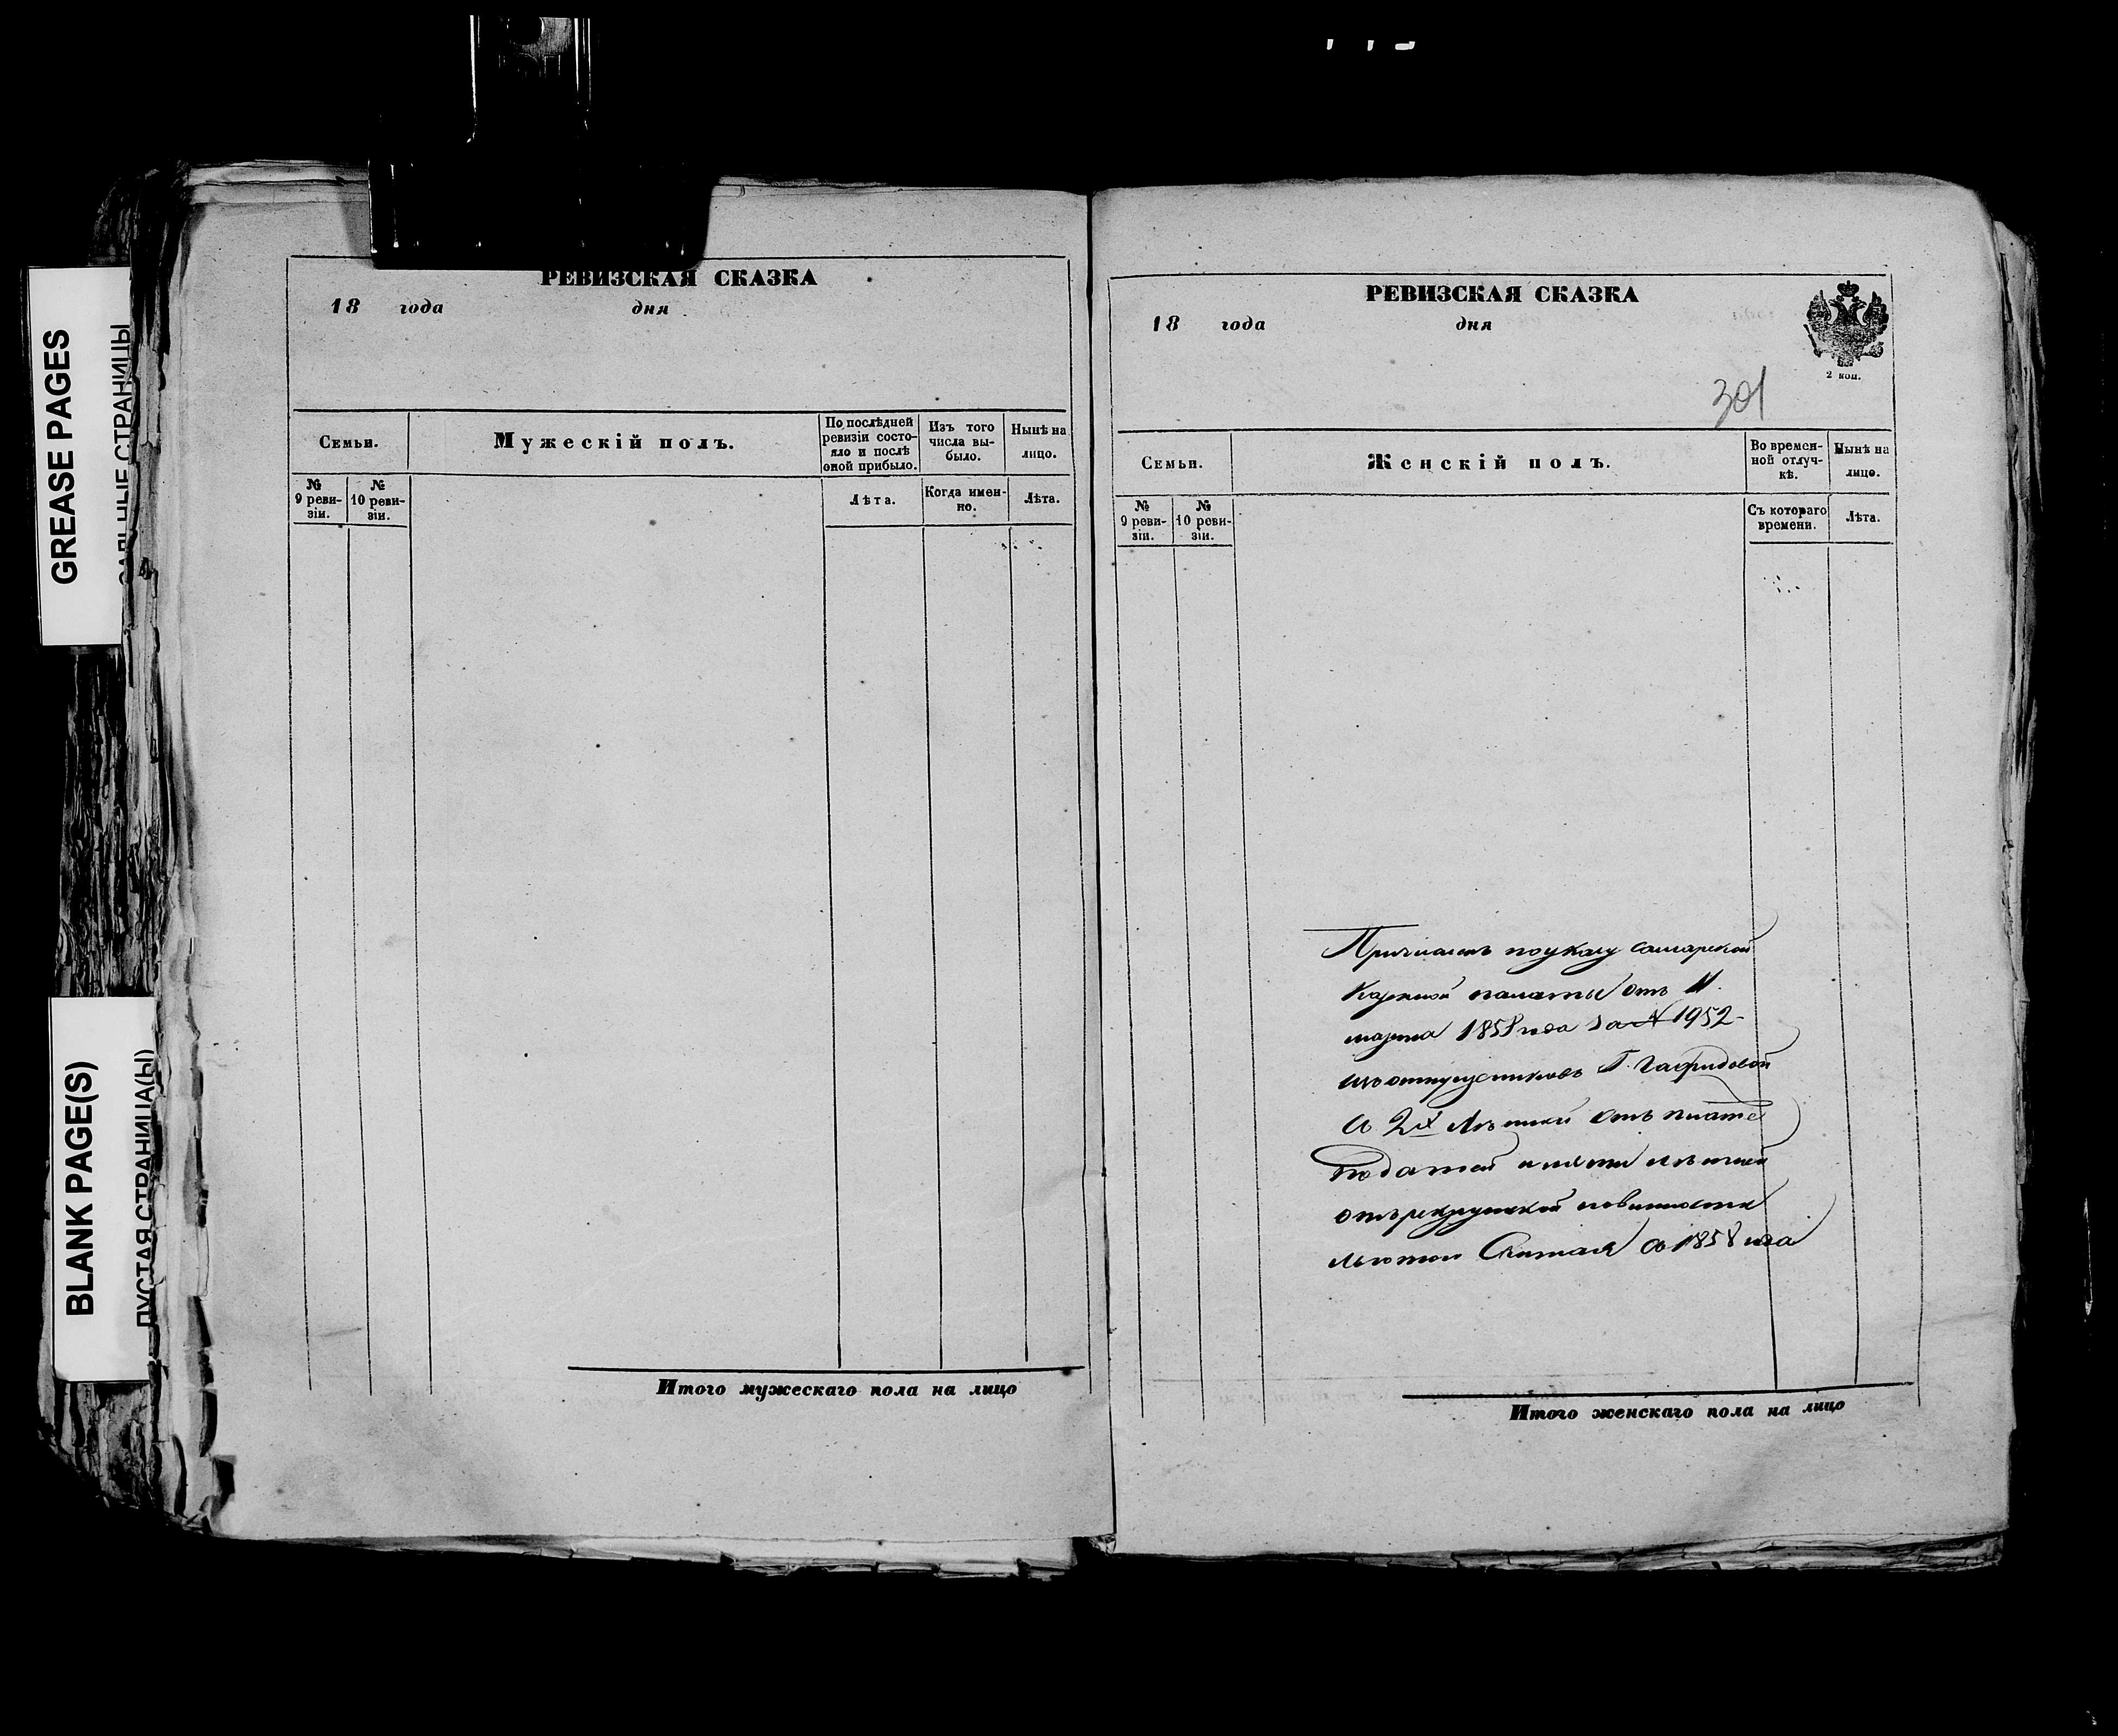 GREASE PAGES
САЛЬНЫЕ СТРАНИЦЫ
BLANK PAGE(S)
ПУСТАЯ СТРАНИЦА(Ы)
РЕВИЗСКАЯ СКАЗКА
18 года дня
Семьи.
Мужескій полъ.
По послѣдней ревизіи состояло и послѣ оной прибыло.
Изъ того числа выбыло.
Нынѣ на лицо.
№ 9 ревизіи.
№ 10 ревизіи.
Лѣта.
Когда именно.
Лѣта.
Итого мужескаго пола на лицо
РЕВИЗСКАЯ СКАЗКА
18 года дня
2 коп.
301
Семьи.
Женскій полъ.
Во временной отлучкѣ.
Нынѣ на лицо.
№ 9 ревизіи.
№ 10 ревизіи.
Съ котораго времени.
Лѣта.
Причисленъ по указу самарской
Казенной палаты отъ 11
марта 1858 года за № 1952
изъ отпущенниковъ Г.
съ 2х лѣтней отъ платежа
податей и лѣтней
отъ рекрутской повинности
льготой Считая съ 1858 года
Итого женскаго пола на лицо